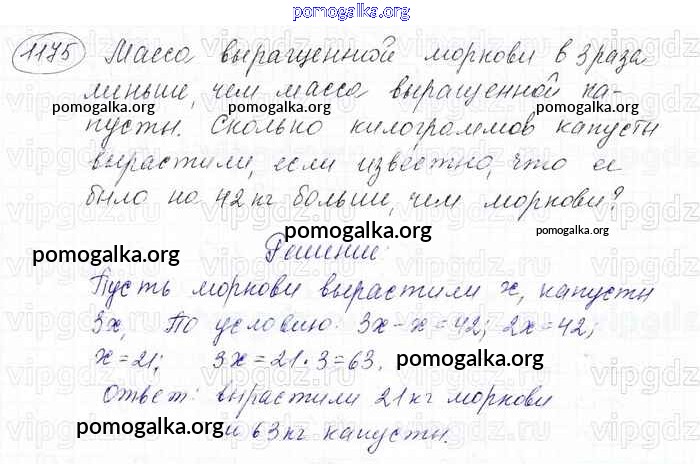 pomogalka.org
1175 Масса выращенной моркови в 3 раза
меньше, чем масса выращенной ка-
pomogalka.org pomogalka.org pomogalka.org
пусты. Сколько килограммов капусты
вырастили, если известно, что её
было на 42 кг больше, чем моркови?
pomogalka.org pomogalka.org pomogalka.org
Решение:
Пусть моркови вырастили x, капусты
3x, По условию: 3x-x=42; 2x=42;
x=21; 3x=21·3=63.
pomogalka.org
Ответ: вырастили 21 кг моркови
и 63 кг капусты.
pomogalka.org